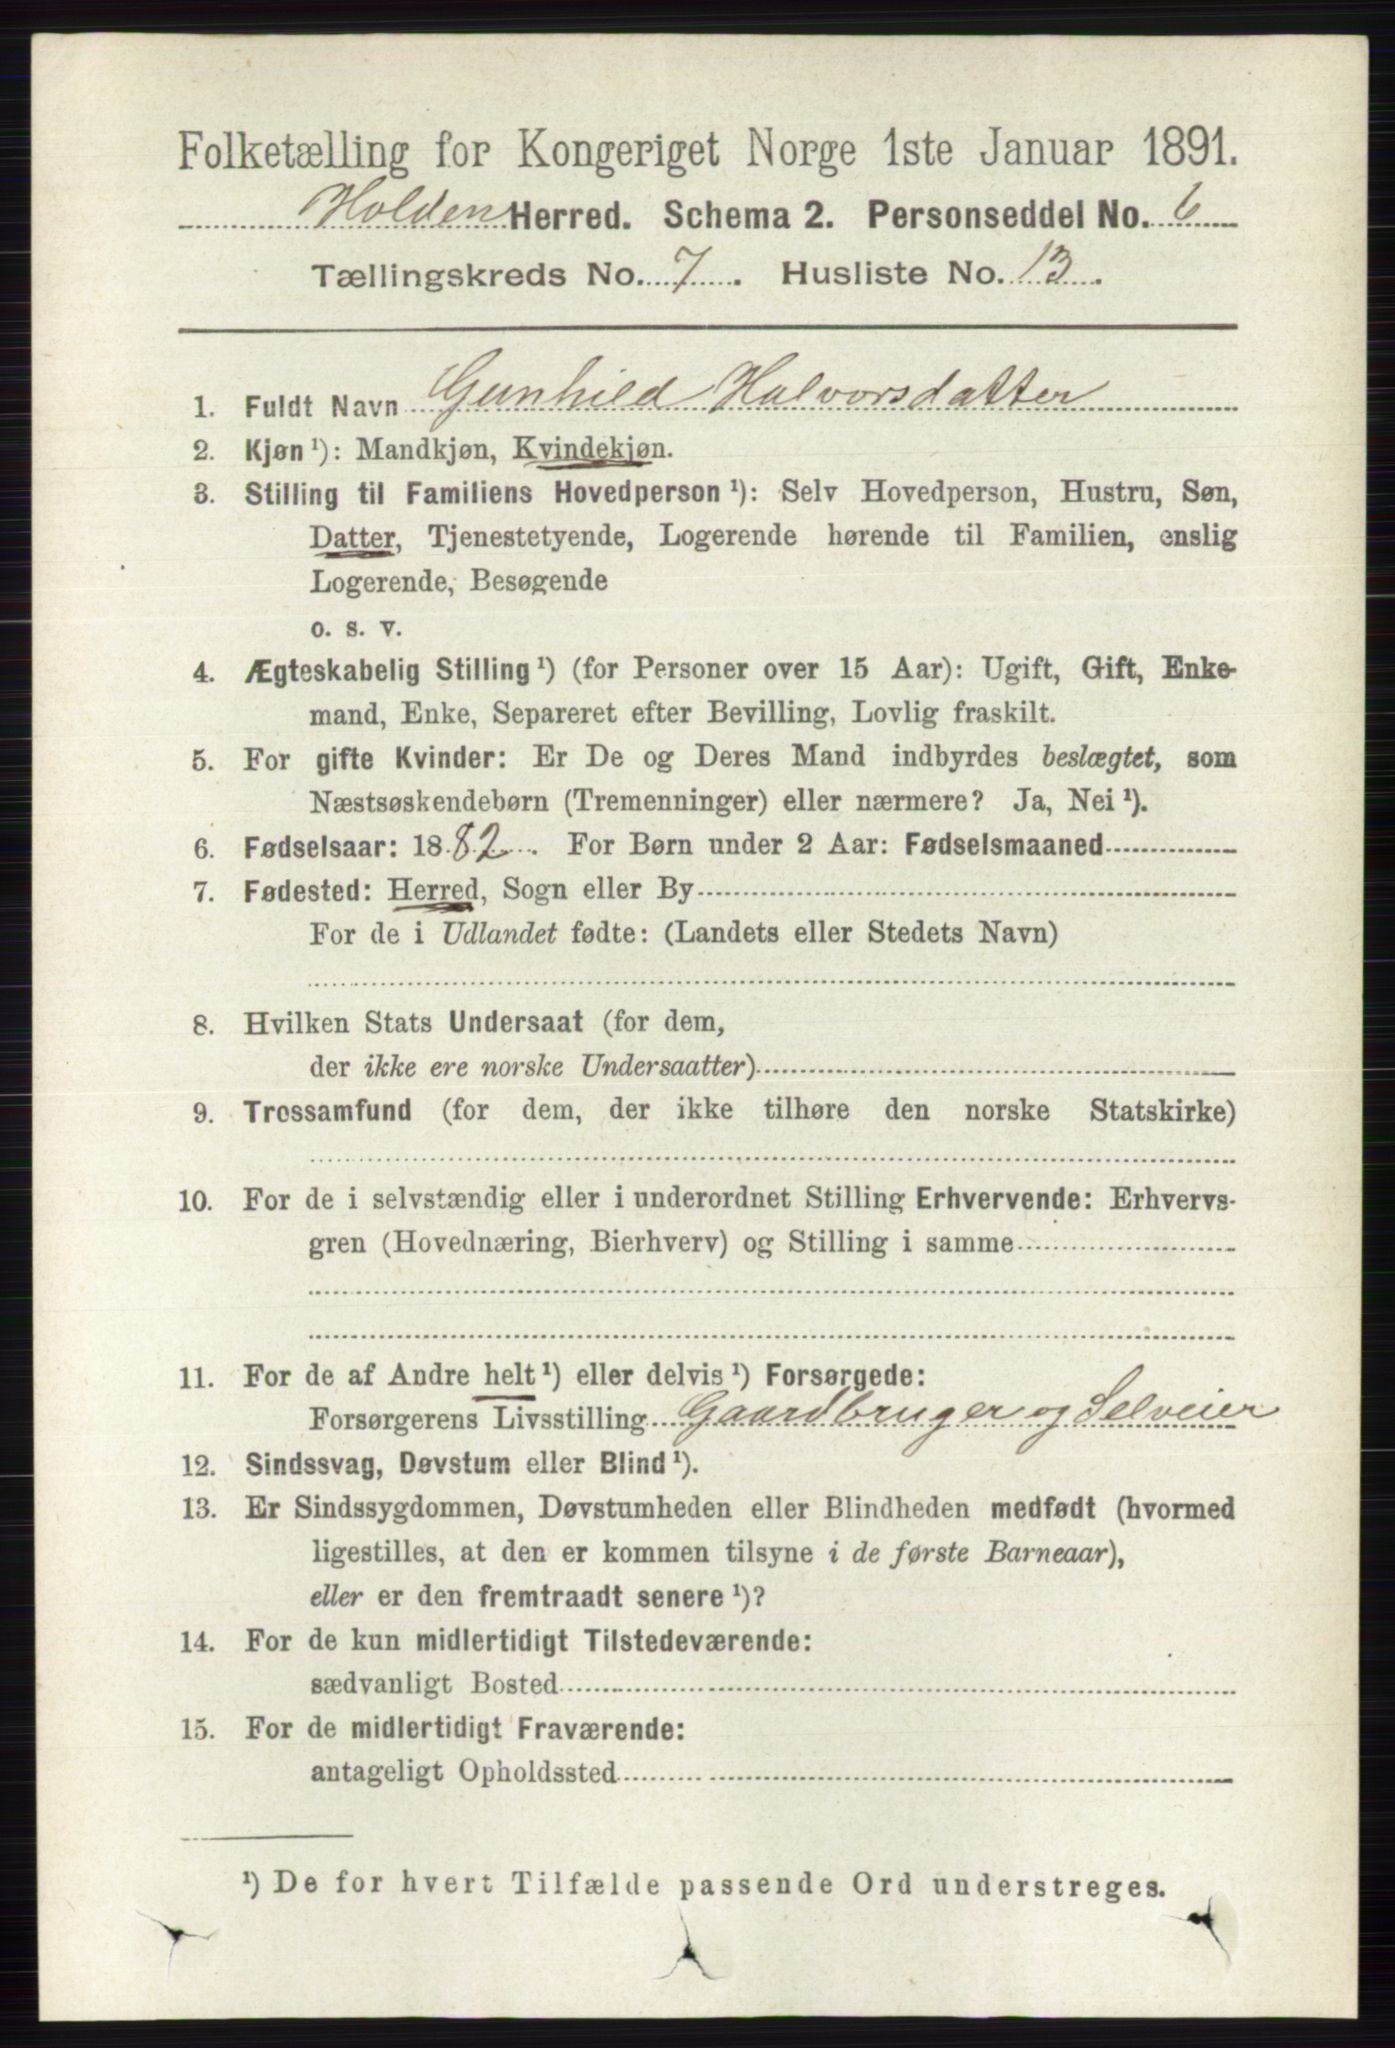 Folketælling for Kongeriget Norge 1ste Januar 1891.
Holden Herred. Schema 2. Personseddel No. 6
Tællingskreds No. 7. Husliste No. 13.
1. Fuldt Navn Gunhild Halvorsdatter
2. Kjøn ¹): Mandkjøn, Kvindekjøn.
3. Stilling til Familiens Hovedperson ¹): Selv Hovedperson, Hustru, Søn,
Datter, Tjenestetyende, Logerende hørende til Familien, enslig
Logerende, Besøgende
o. s. v.
4. Ægteskabelig Stilling ¹) (for Personer over 15 Aar): Ugift, Gift, Enke-
mand, Enke, Separeret efter Bevilling, Lovlig fraskilt.
5. For gifte Kvinder: Er De og Deres Mand indbyrdes beslægtet, som
Næstsøskendebørn (Tremenninger) eller nærmere? Ja, Nei ¹).
6. Fødselsaar: 1882. For Børn under 2 Aar: Fødselsmaaned
7. Fødested: Herred, Sogn eller By
For de i Udlandet fødte: (Landets eller Stedets Navn)
8. Hvilken Stats Undersaat (for dem,
der ikke ere norske Undersaatter)
9. Trossamfund (for dem, der ikke tilhøre den norske Statskirke)
10. For de i selvstændig eller i underordnet Stilling Erhvervende: Erhvervs-
gren (Hovednæring, Bierhverv) og Stilling i samme
11. For de af Andre helt ¹) eller delvis ¹) Forsørgede:
Forsørgerens Livsstilling Gaardbruger og Selveier
12. Sindssvag, Døvstum eller Blind ¹).
13. Er Sindssygdommen, Døvstumheden eller Blindheden medfødt (hvormed
ligestilles, at den er kommen tilsyne i de første Barneaar),
eller er den fremtraadt senere ¹)?
14. For de kun midlertidigt Tilstedeværende:
sædvanligt Bosted
15. For de midlertidigt Fraværende:
antageligt Opholdssted
¹) De for hvert Tilfælde passende Ord understreges.